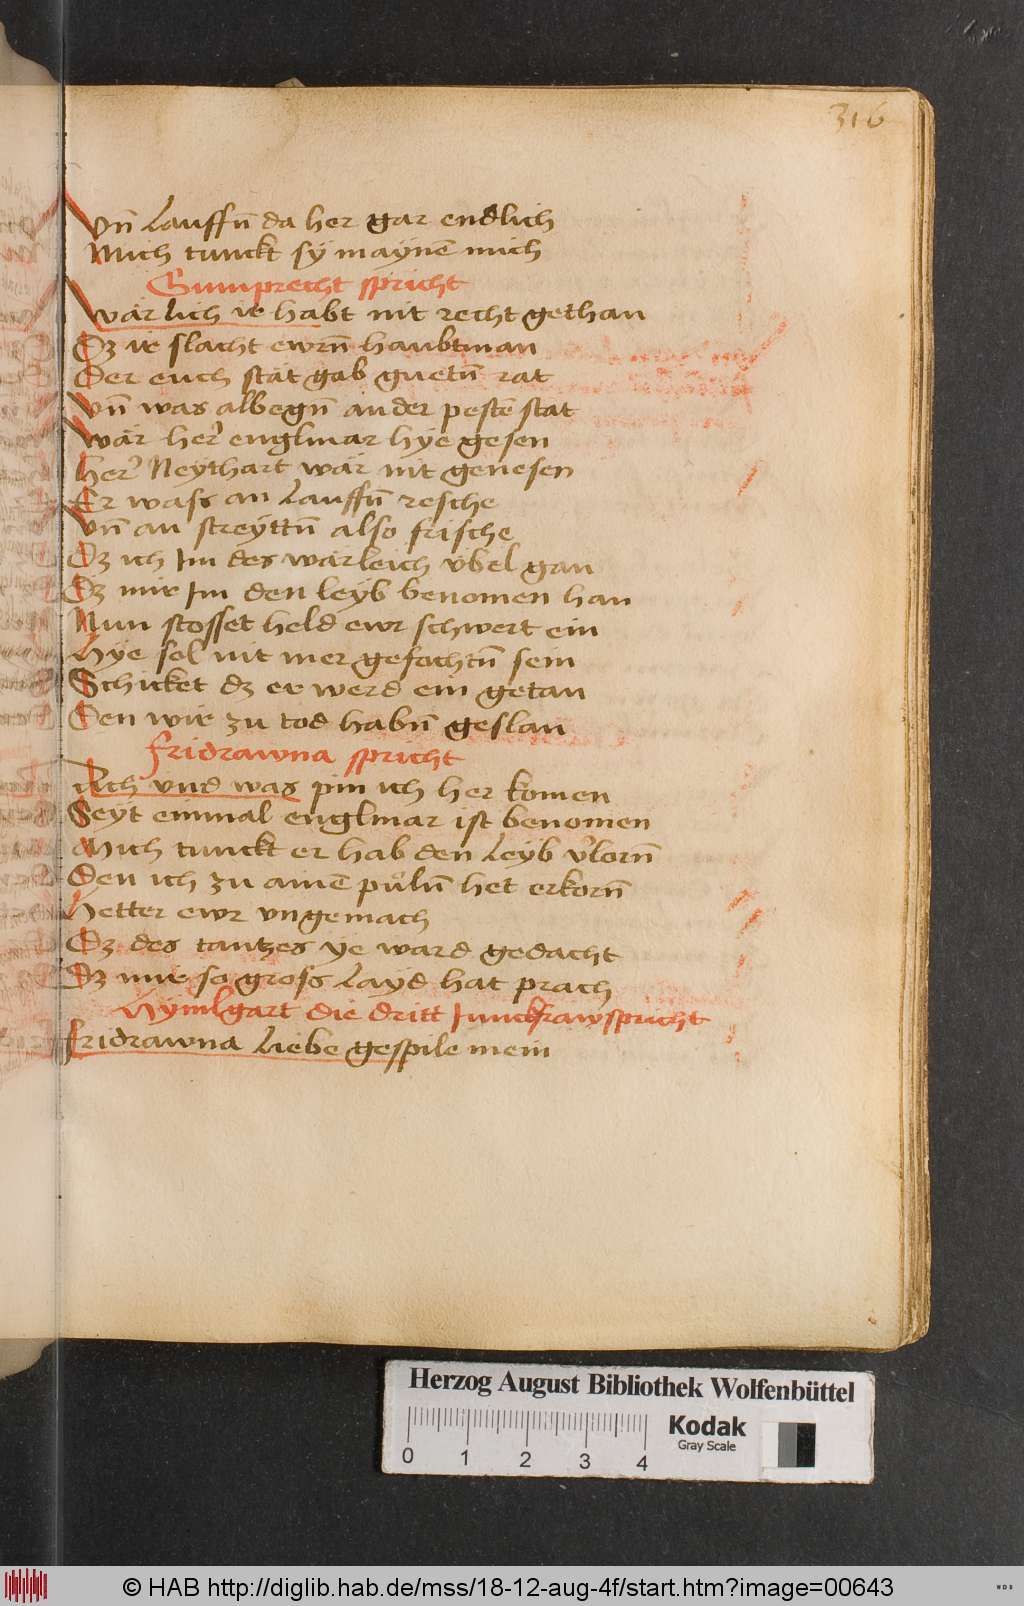 316
Vn̄ Lauffn̄ da her gar endlich
Mich tunckt sy maynē mich
Gumprecht spricht
Wärlich ir habt nit recht gethan
Dz ir slacht ewrn̄ haubtman
Der euch stät gab guetn̄ rat
Vn̄ was albegn̄ an der pestē stat
Wär her englmar hye gesen
her Neythart wär nit genesen
Er wass an Lauffn̄ resche
Vn̄ an streyttn̄ also frische
Dz ich Im des wärleich übel gan
Dz mir Im den leyb benomen han
Nun stosset held ewr schwert ein
Hye sol nit mer gefochtn̄ sein
Schicket dz er werd ein getan
Den wir zu tod habn̄ geslan
fridrawna spricht
Ach vnd was pin ich her komen
Seyt einmal englmar ist benomen
Mich tunckt er hab den Leyb v̓lorn̄
Den ich zu ainē půln̄ het erkorn̄
Hetter ewr vngemach
Dz des tantzes ye ward gedacht
Dz mir so gross Layd hat prach
Hymlgart die dritt Junckfraw spricht
fridrawna Liebe gespile mein
Herzog August Bibliothek Wolfenbüttel
Kodak
Gray Scale
0 1 2 3 4
© HAB http://diglib.hab.de/mss/18-12-aug-4f/start.htm?image=00643